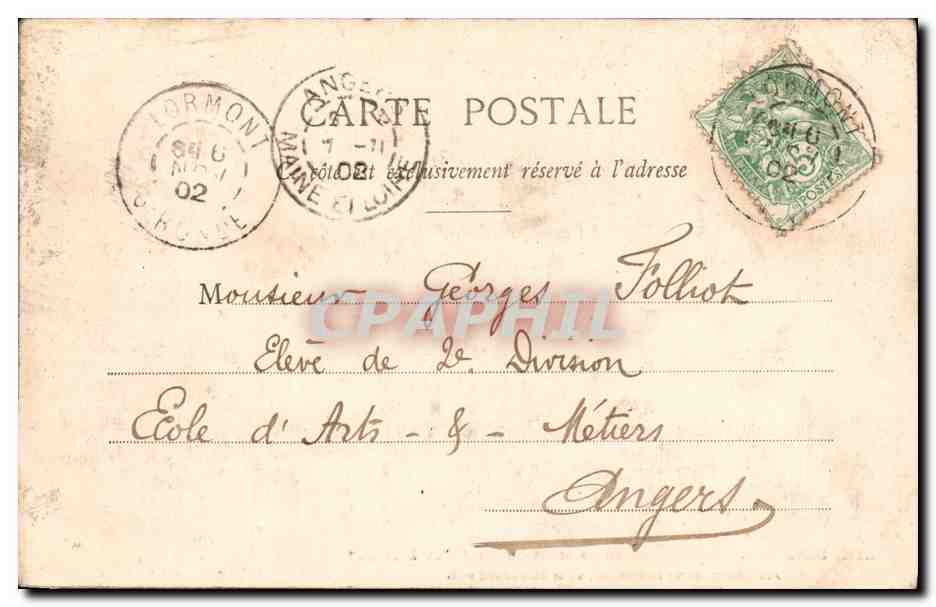 CARTE POSTALE
Ce côté est exclusivement réservé à l'adresse
LORMONT
6
02
GIRONDE
ANGERS
7 -11
02
MAINE ET LOIRE
LORMONT
6
02
5
POSTES
Monsieur Georges Folliot
Elève de 2e Division
Ecole d'Arts - & - Métiers
Angers
CPAPHIL